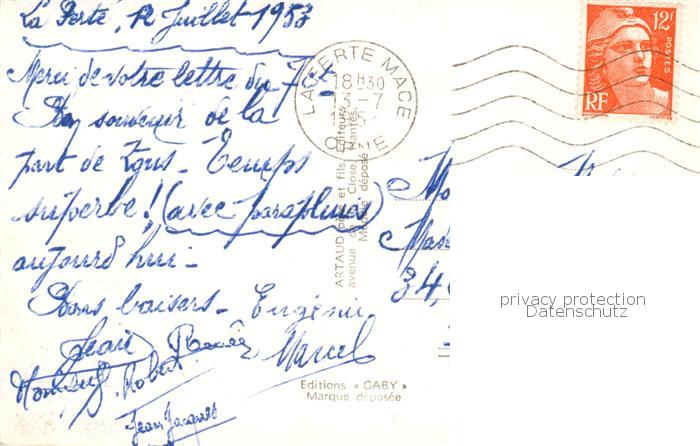 La Ferté, 12 Juillet 1953
Merci de votre lettre du 7 ct
Bon souvenir de la
part de tous - Temps
superbe! (avec parapluies)
aujourd'hui -
Bons baisers - Eugénie
Jean Renée Marcel
Robert
Jean Jacques
LA FERTE MACE
18 H30
13 - 7
ORNE
12F
POSTES
RF
ARTAUD père et fils, Editeurs
avenue de la Close, Nantes.
Modèle déposé
34,
privacy protection
Datenschutz
Editions « GABY »
Marque déposée